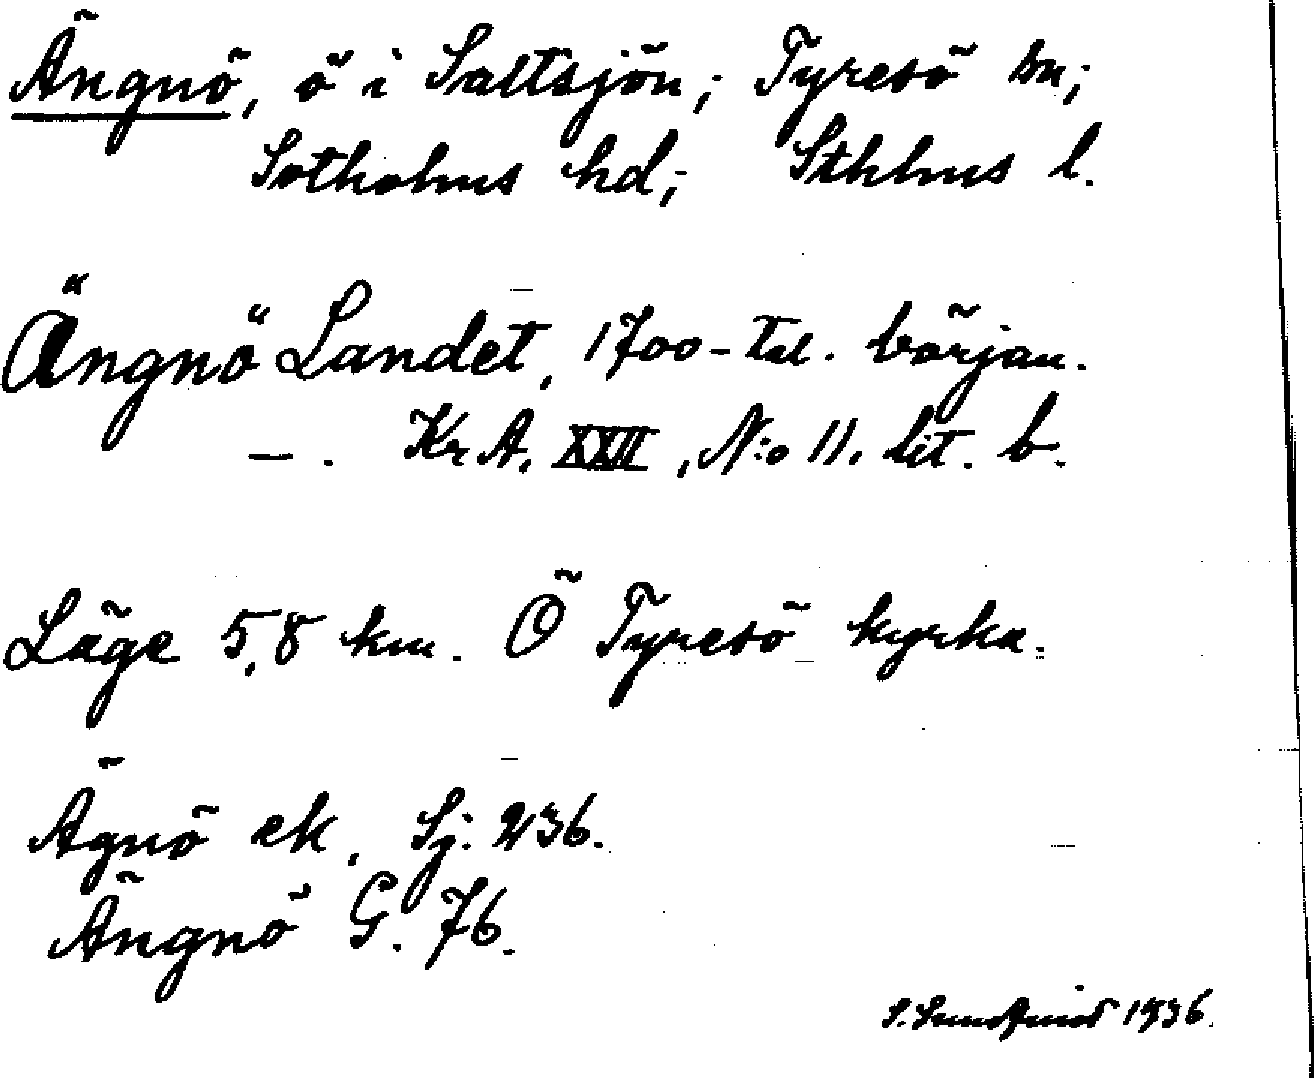 Ängnö, ö i Saltsjön; Tyresö sn;
Sotholms hd; Sthlms l.
Ängnö Landet, 1700-tal. början.
—. Kr A. XXII, N:o 11. lit. b.
Läge 5,8 km. Ö Tyresö kyrka.
Ägnö ek, Sj. 236.
Ängnö G. 76.
S. 1936.